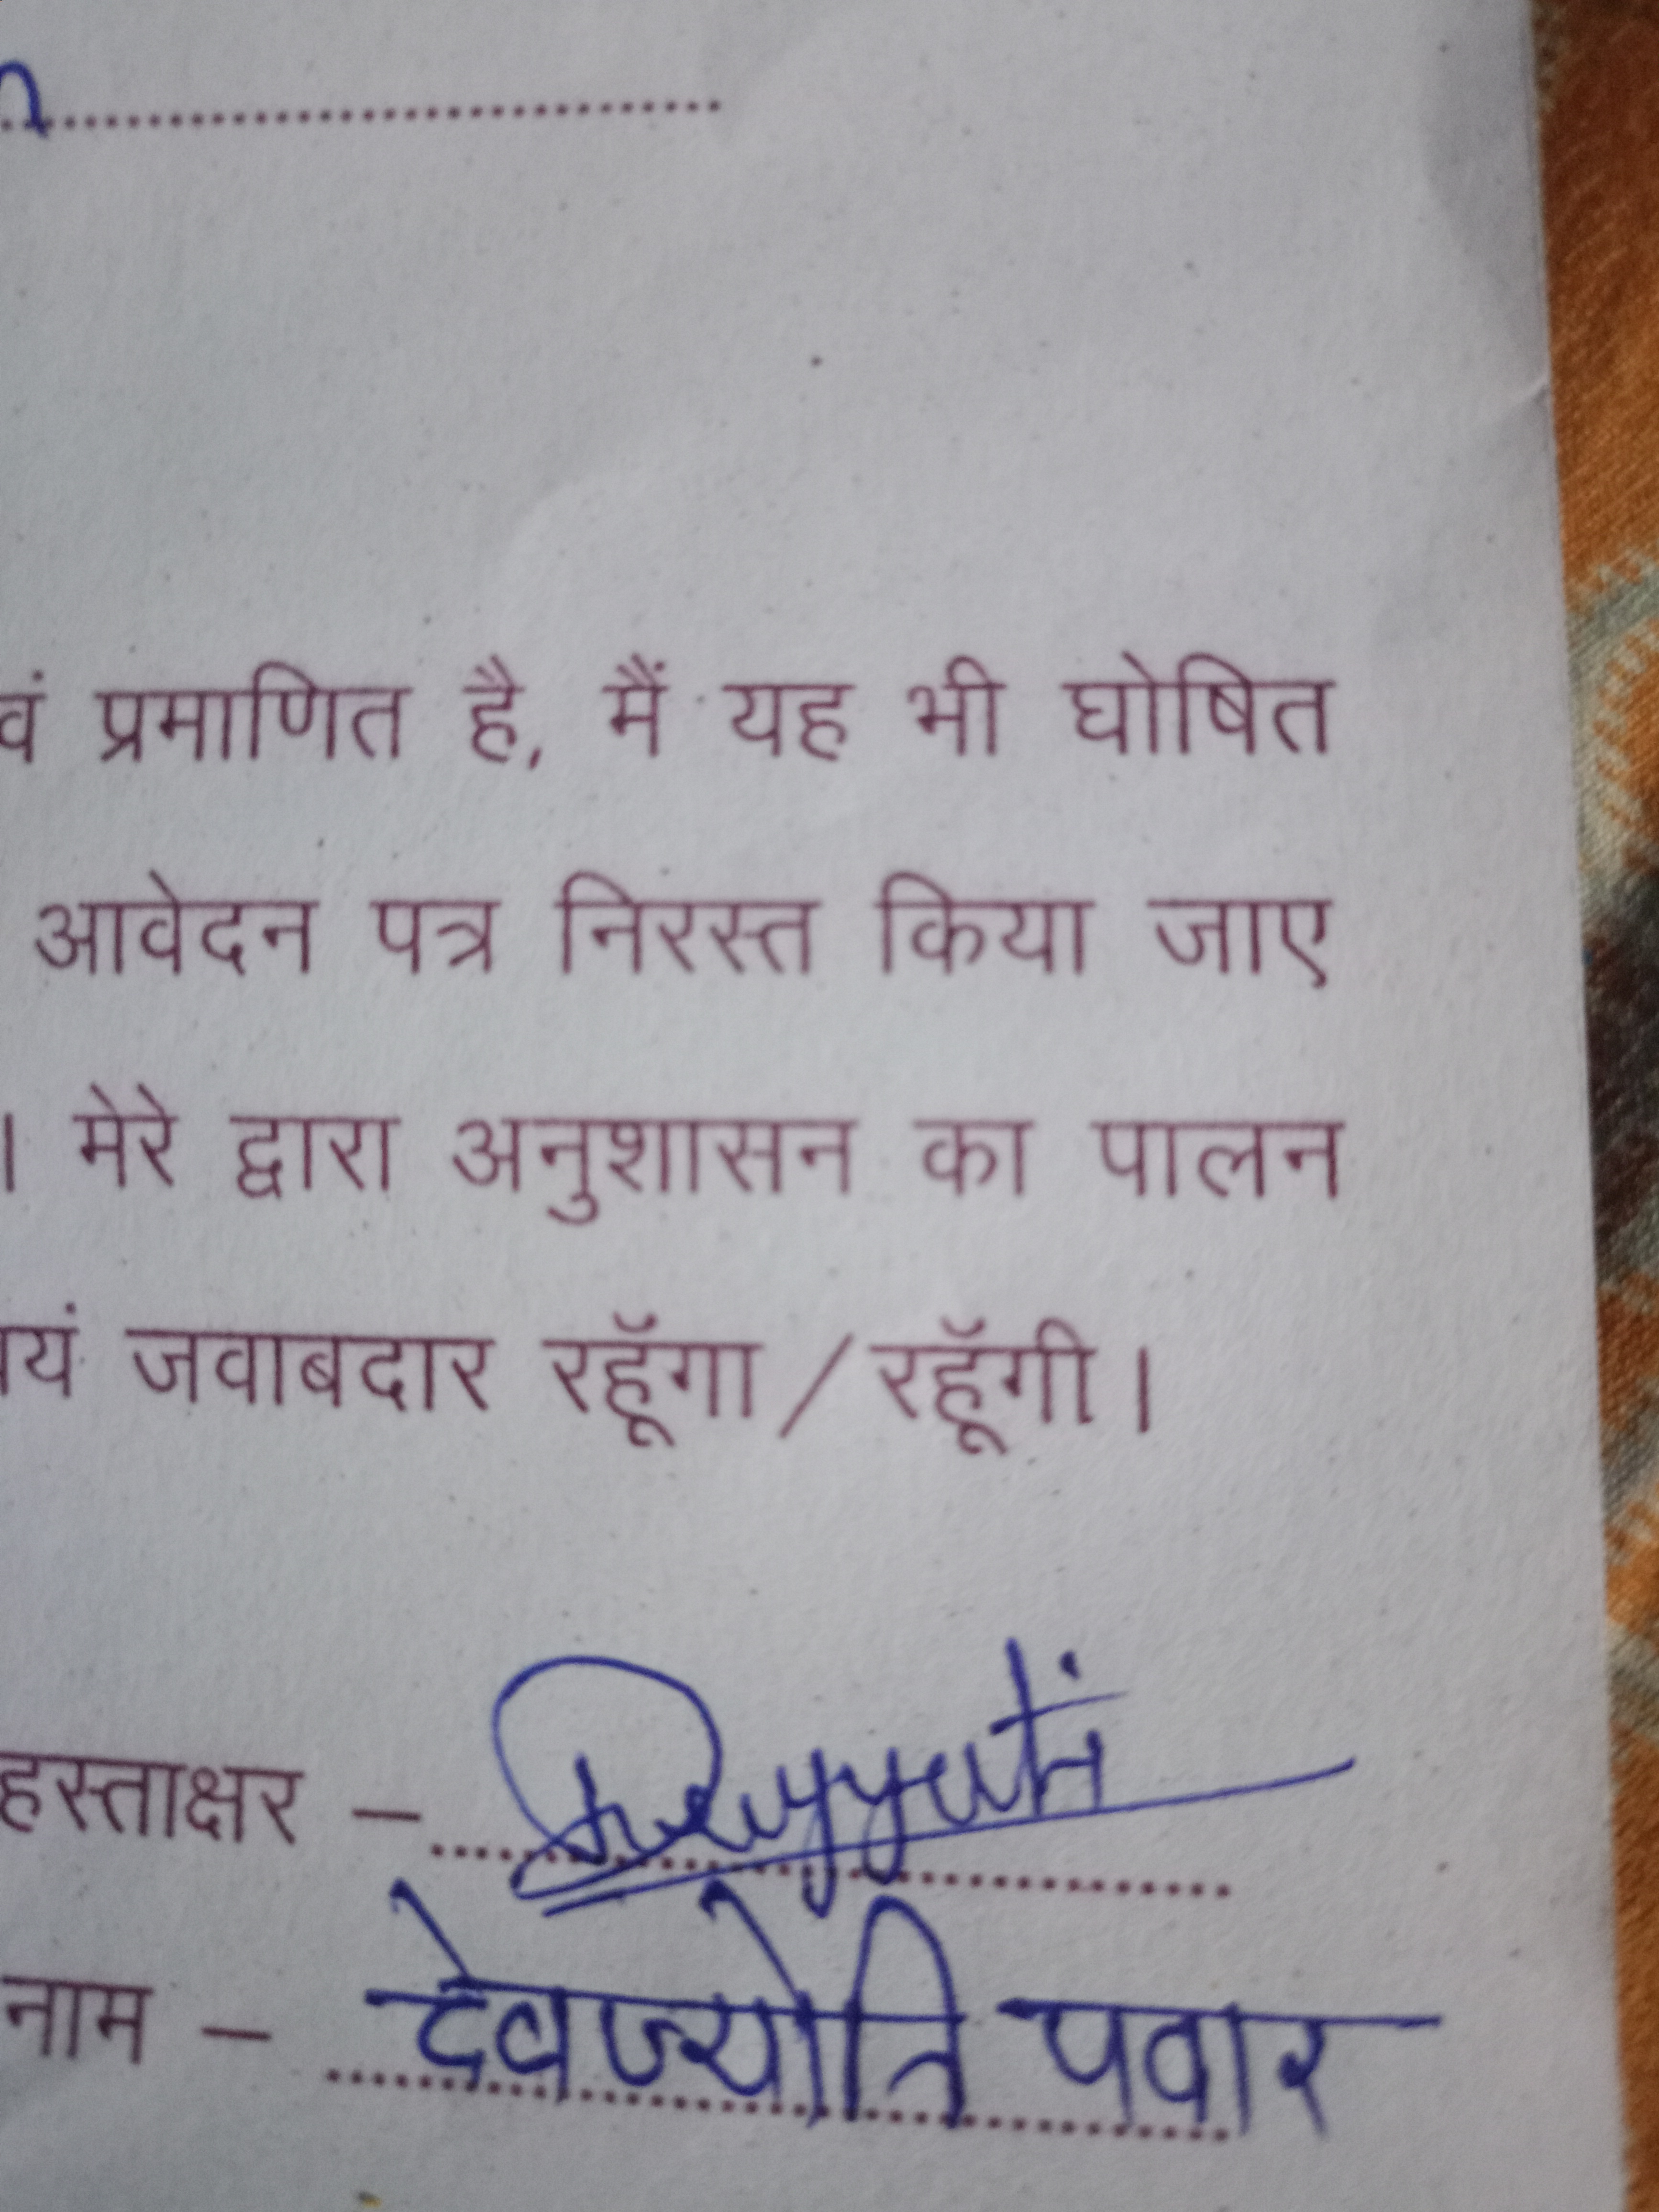 वं प्रमाणित है, मैं यह भी घोषित
आवेदन पत्र निरस्त किया जाए
। मेरे द्वारा अनुशासन का पालन
यं जवाबदार रहूॅंगा/रहूॅंगी।
हस्ताक्षर –
नाम – देवज्योति पवार